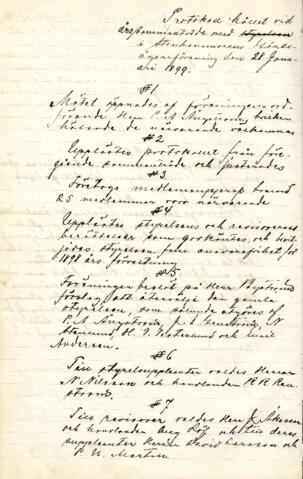 Protokoll hållet vid
årssammanträde med styrelsen
i Stenhammarens
ägareförening den 28 Janu-
ari 1899.
#1
Mötet öppnades af föreningens ord-
förande Herr P. A. Ångström, hvilken
hälsade de närvarande välkomna
#2
Upplästes protokollet från före-
gående sammanträde och justerades
#3
Företogs medlemsupprop hvarvid
25 medlemmar voro närvarande
#4
Upplästes styrelsens och revisorernas
berättelser som godkändes, och bevil-
jades styrelsen full ansvarsfrihet för
1898 års förvaltning
#5
Föreningen beslöt på Herr Byströms
förslag att återvälja den gamla
styrelsen, som sålunda utgöres af
P. A. Ångström, N.
H. J. och Emil
Andersson.
#6
Till styrelsesuppleanter valdes Herrar
N. Nilsson och handlanden
#7
Till revisorer valdes Herr J. Åkesson
och handlanden Aug och till deras
suppleanter Herrar David Larsson och
P. N. Martin.